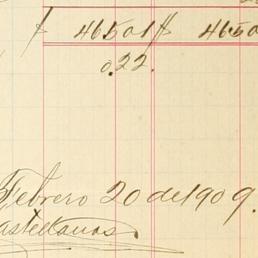 $ 46501 $ 4650
0.22.
Febrero 20 de 1909.
Castellanos.